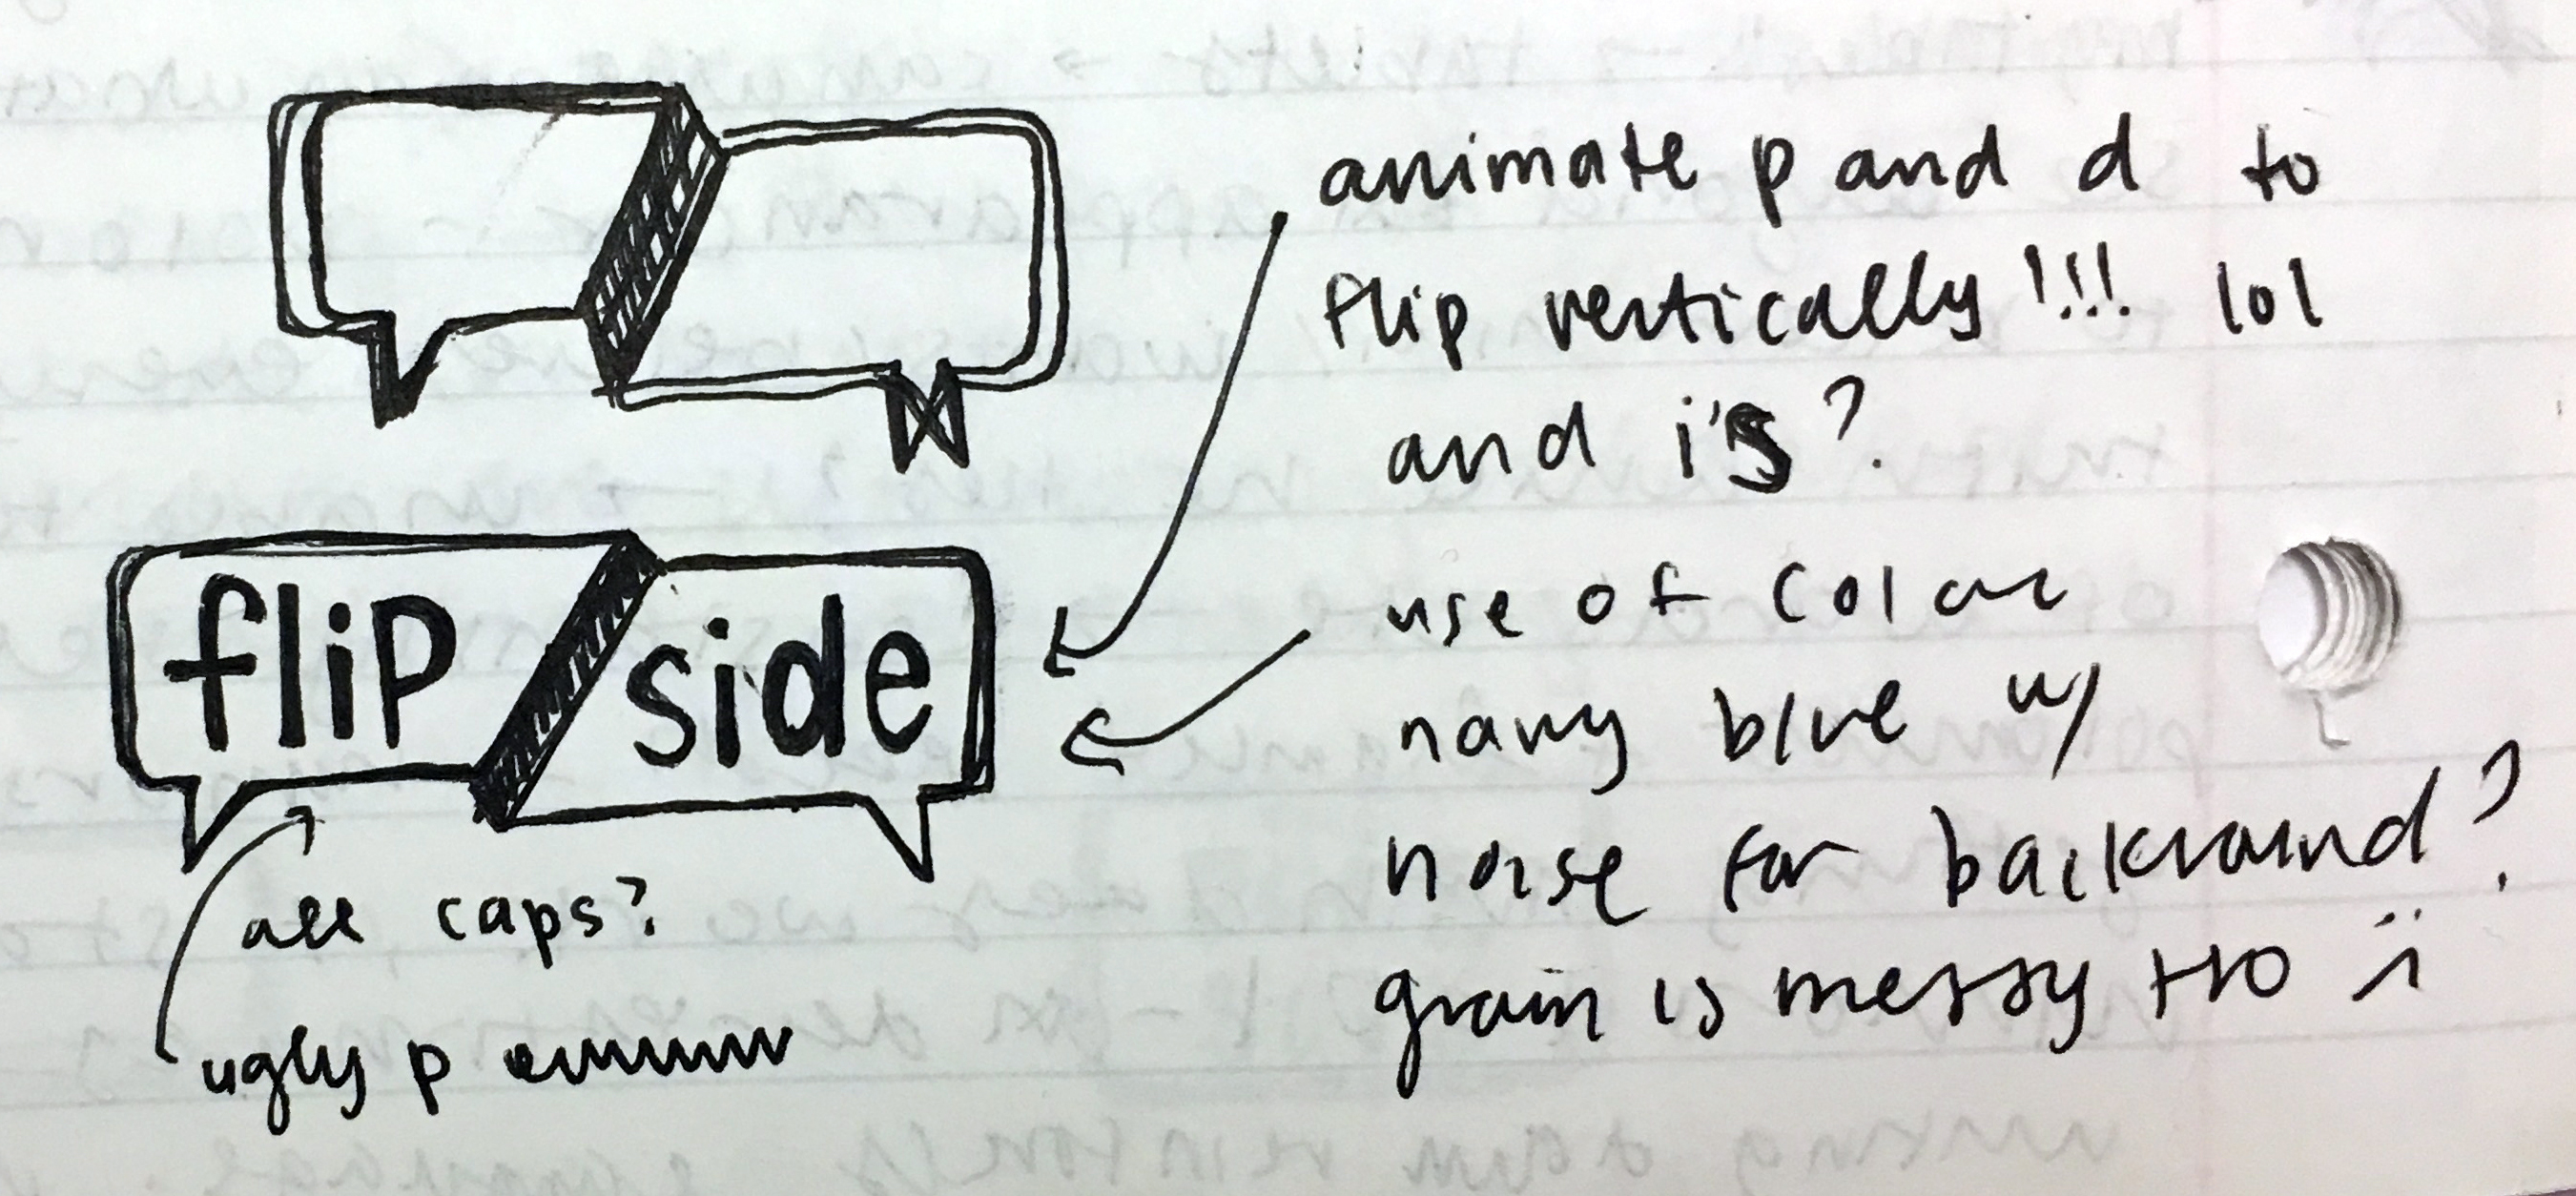 animate p and d to
flip vertically!!! lol
and i's?
flip side
use of color
navy blue w/
noise for backround?
grain is messy tho
all caps?
ugly p ewwww